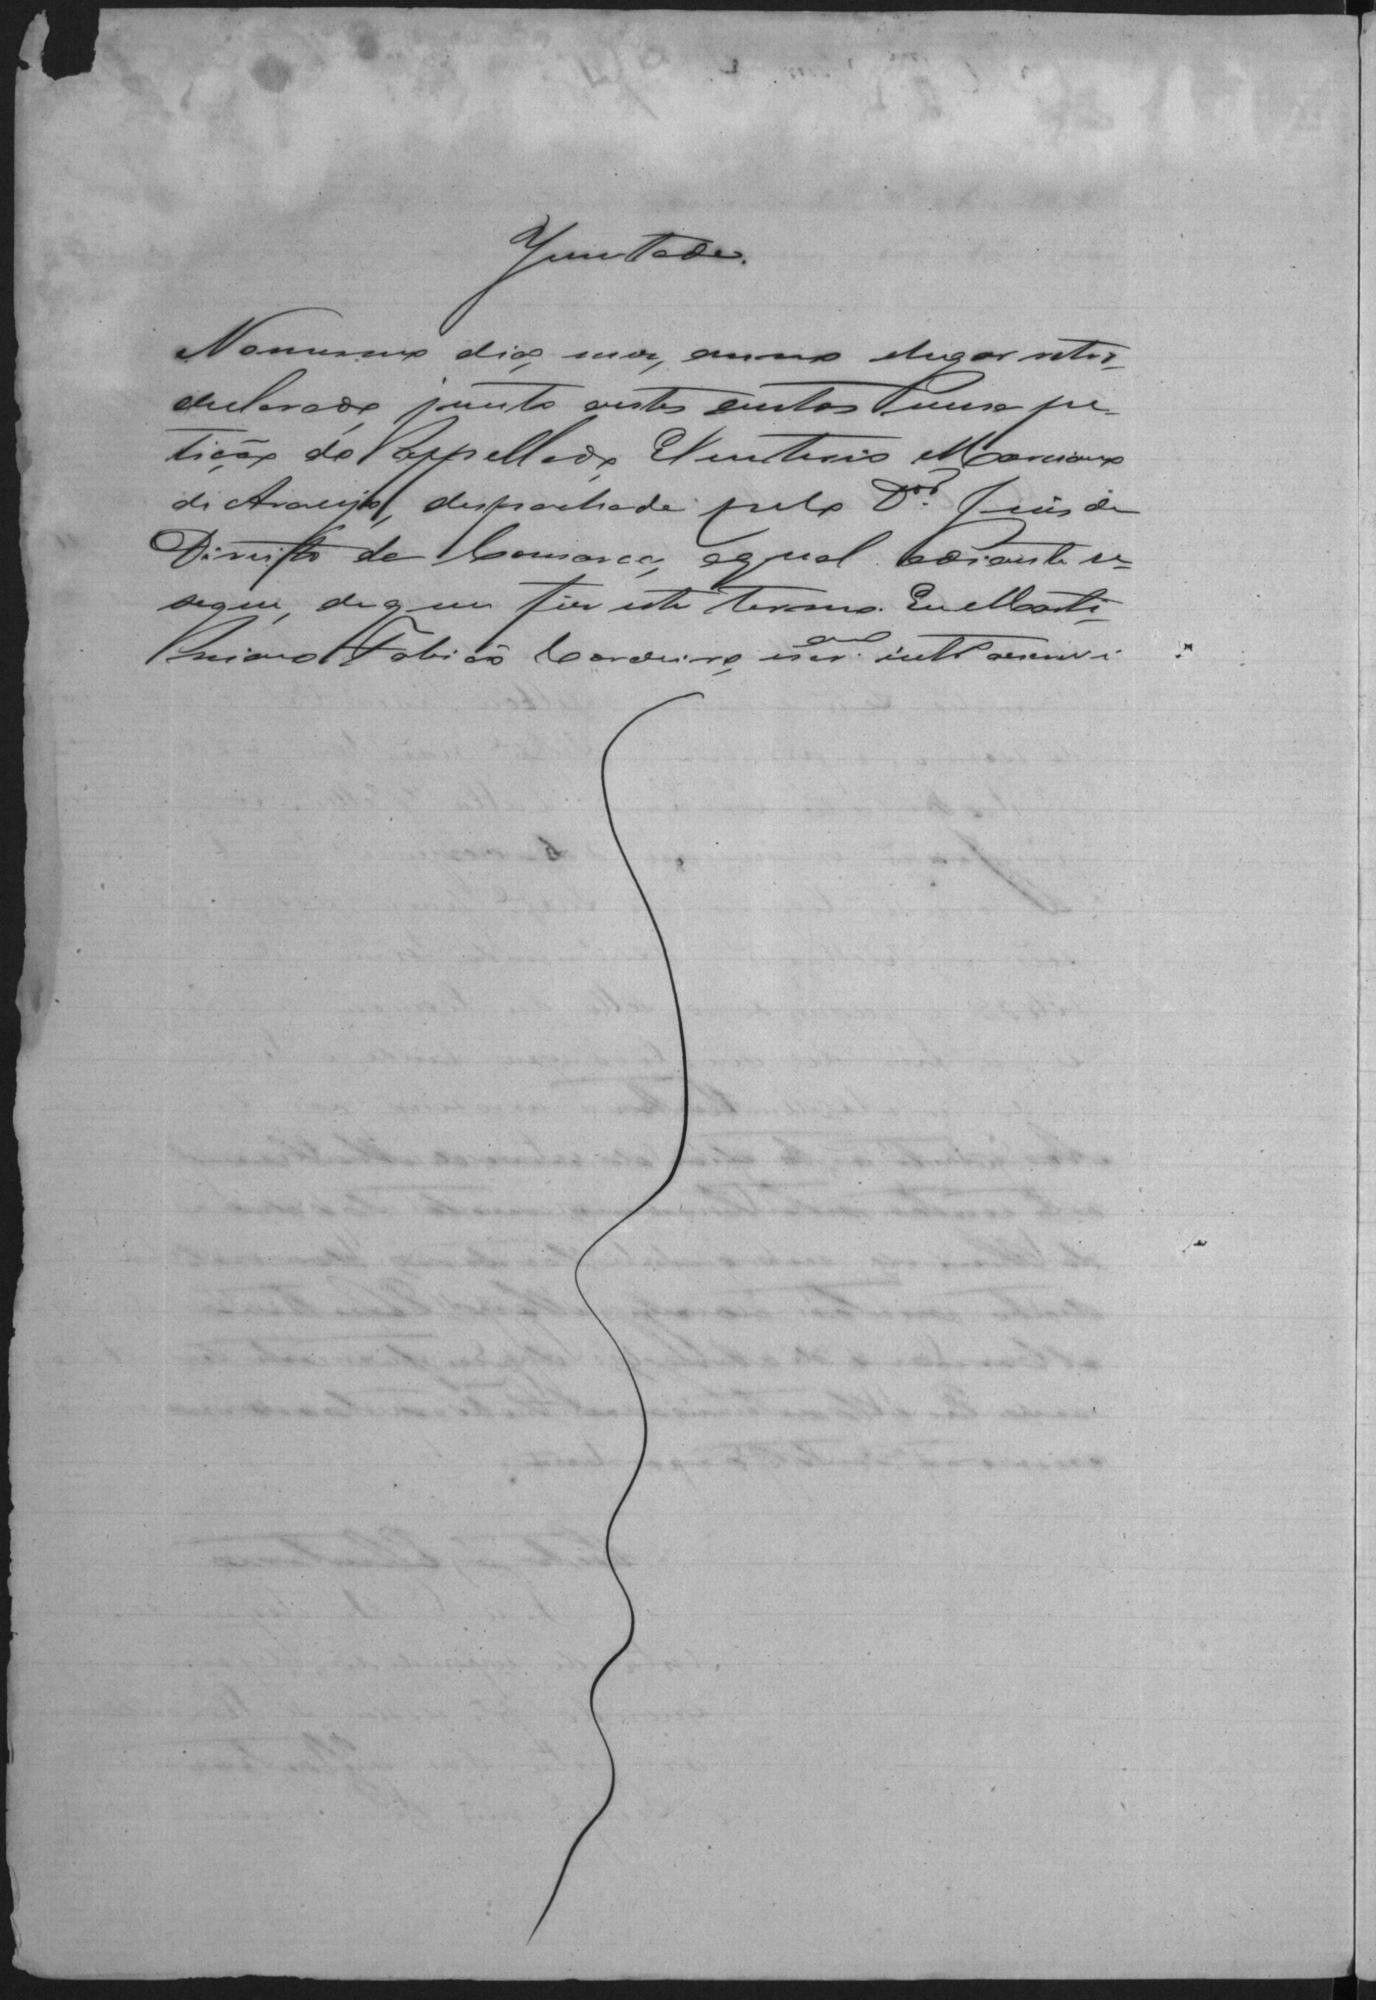 Juntada.
No mesmo dia, mez, anno e lugar retro
declarado, junto a estes autos uma pe-
tição do Appellado, Eleuterio Marciano
de Araujo, despachada pelo Dor. Juis de
Direito da Comarca, a qual adiante se
segue, de que fiz este termo. Eu Marti-
niano Fabião Cordeiro, escrivão